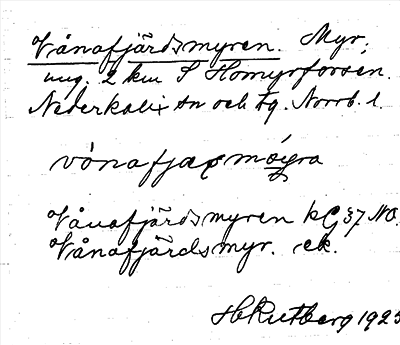 Vånafjärdsmyren. Myr,
ung. 2 km S Homyrforsen.
Nederkalix sn och tg. Norrb. l.
vònafjæṣmóyra
Vånafjärdsmyren kG 37 NO.
Vånafjärdsmyr. ek.
H Rutberg 1925